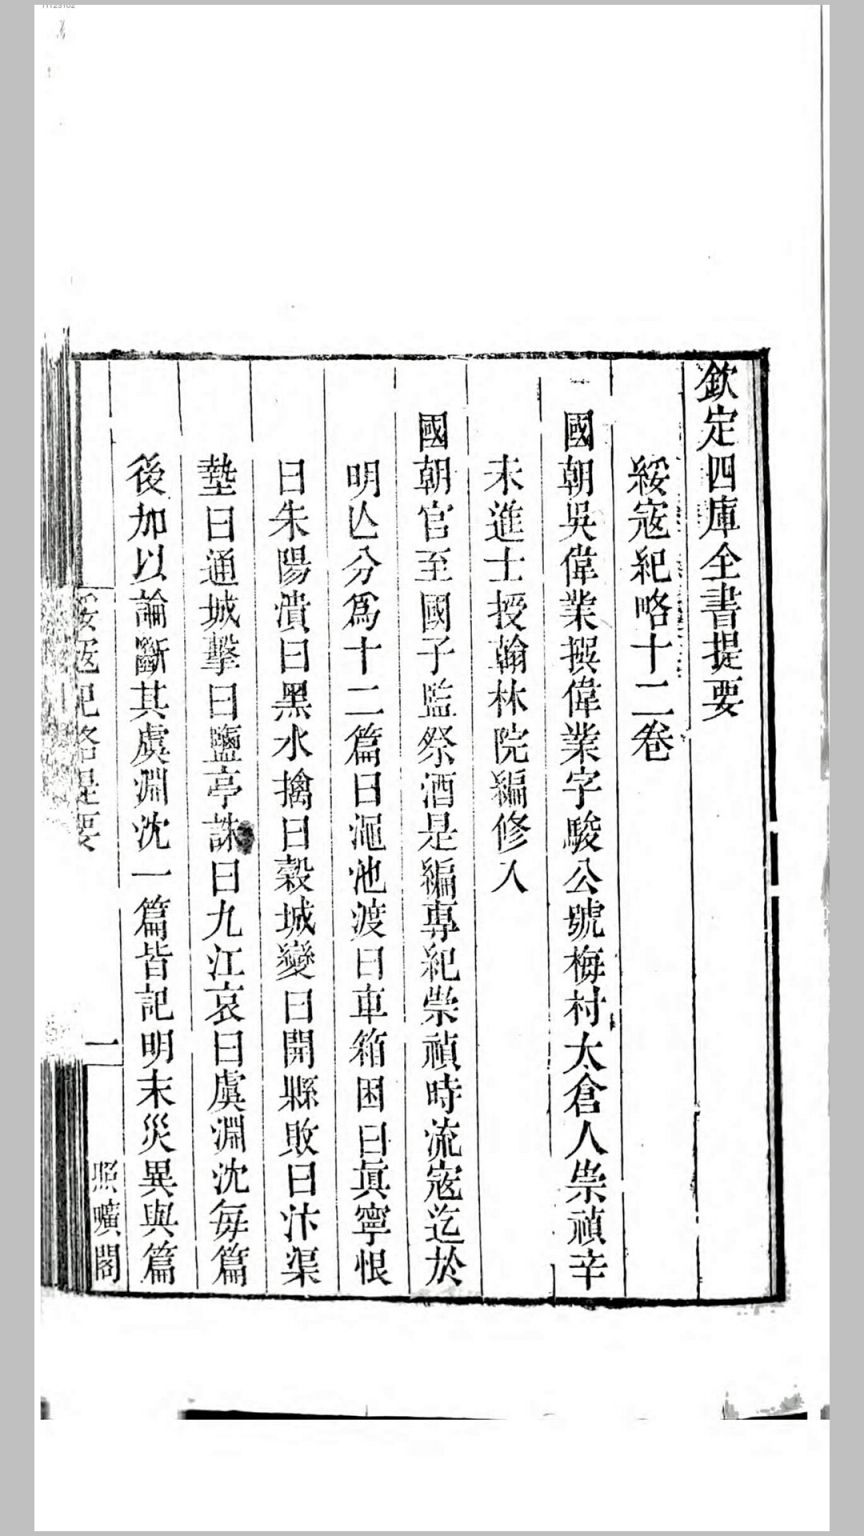 欽定四庫全書提要
綏寇紀略十二卷
國朝吳偉業撰偉業字駿公號梅村太倉人崇禎辛
未進士授翰林院編修入
國朝官至國子監祭酒是編專紀崇禎時流寇迄於
明亾分爲十二篇曰澠池渡曰車箱困曰眞寧恨
曰朱陽潰曰黑水擒曰穀城變曰開縣敗曰汴渠
墊曰通城擊曰鹽亭誅曰九江哀曰虞淵沈每篇
後加以論斷其虞淵沈一篇皆記明末災異與篇
綏寇紀略提要
一
照曠閣